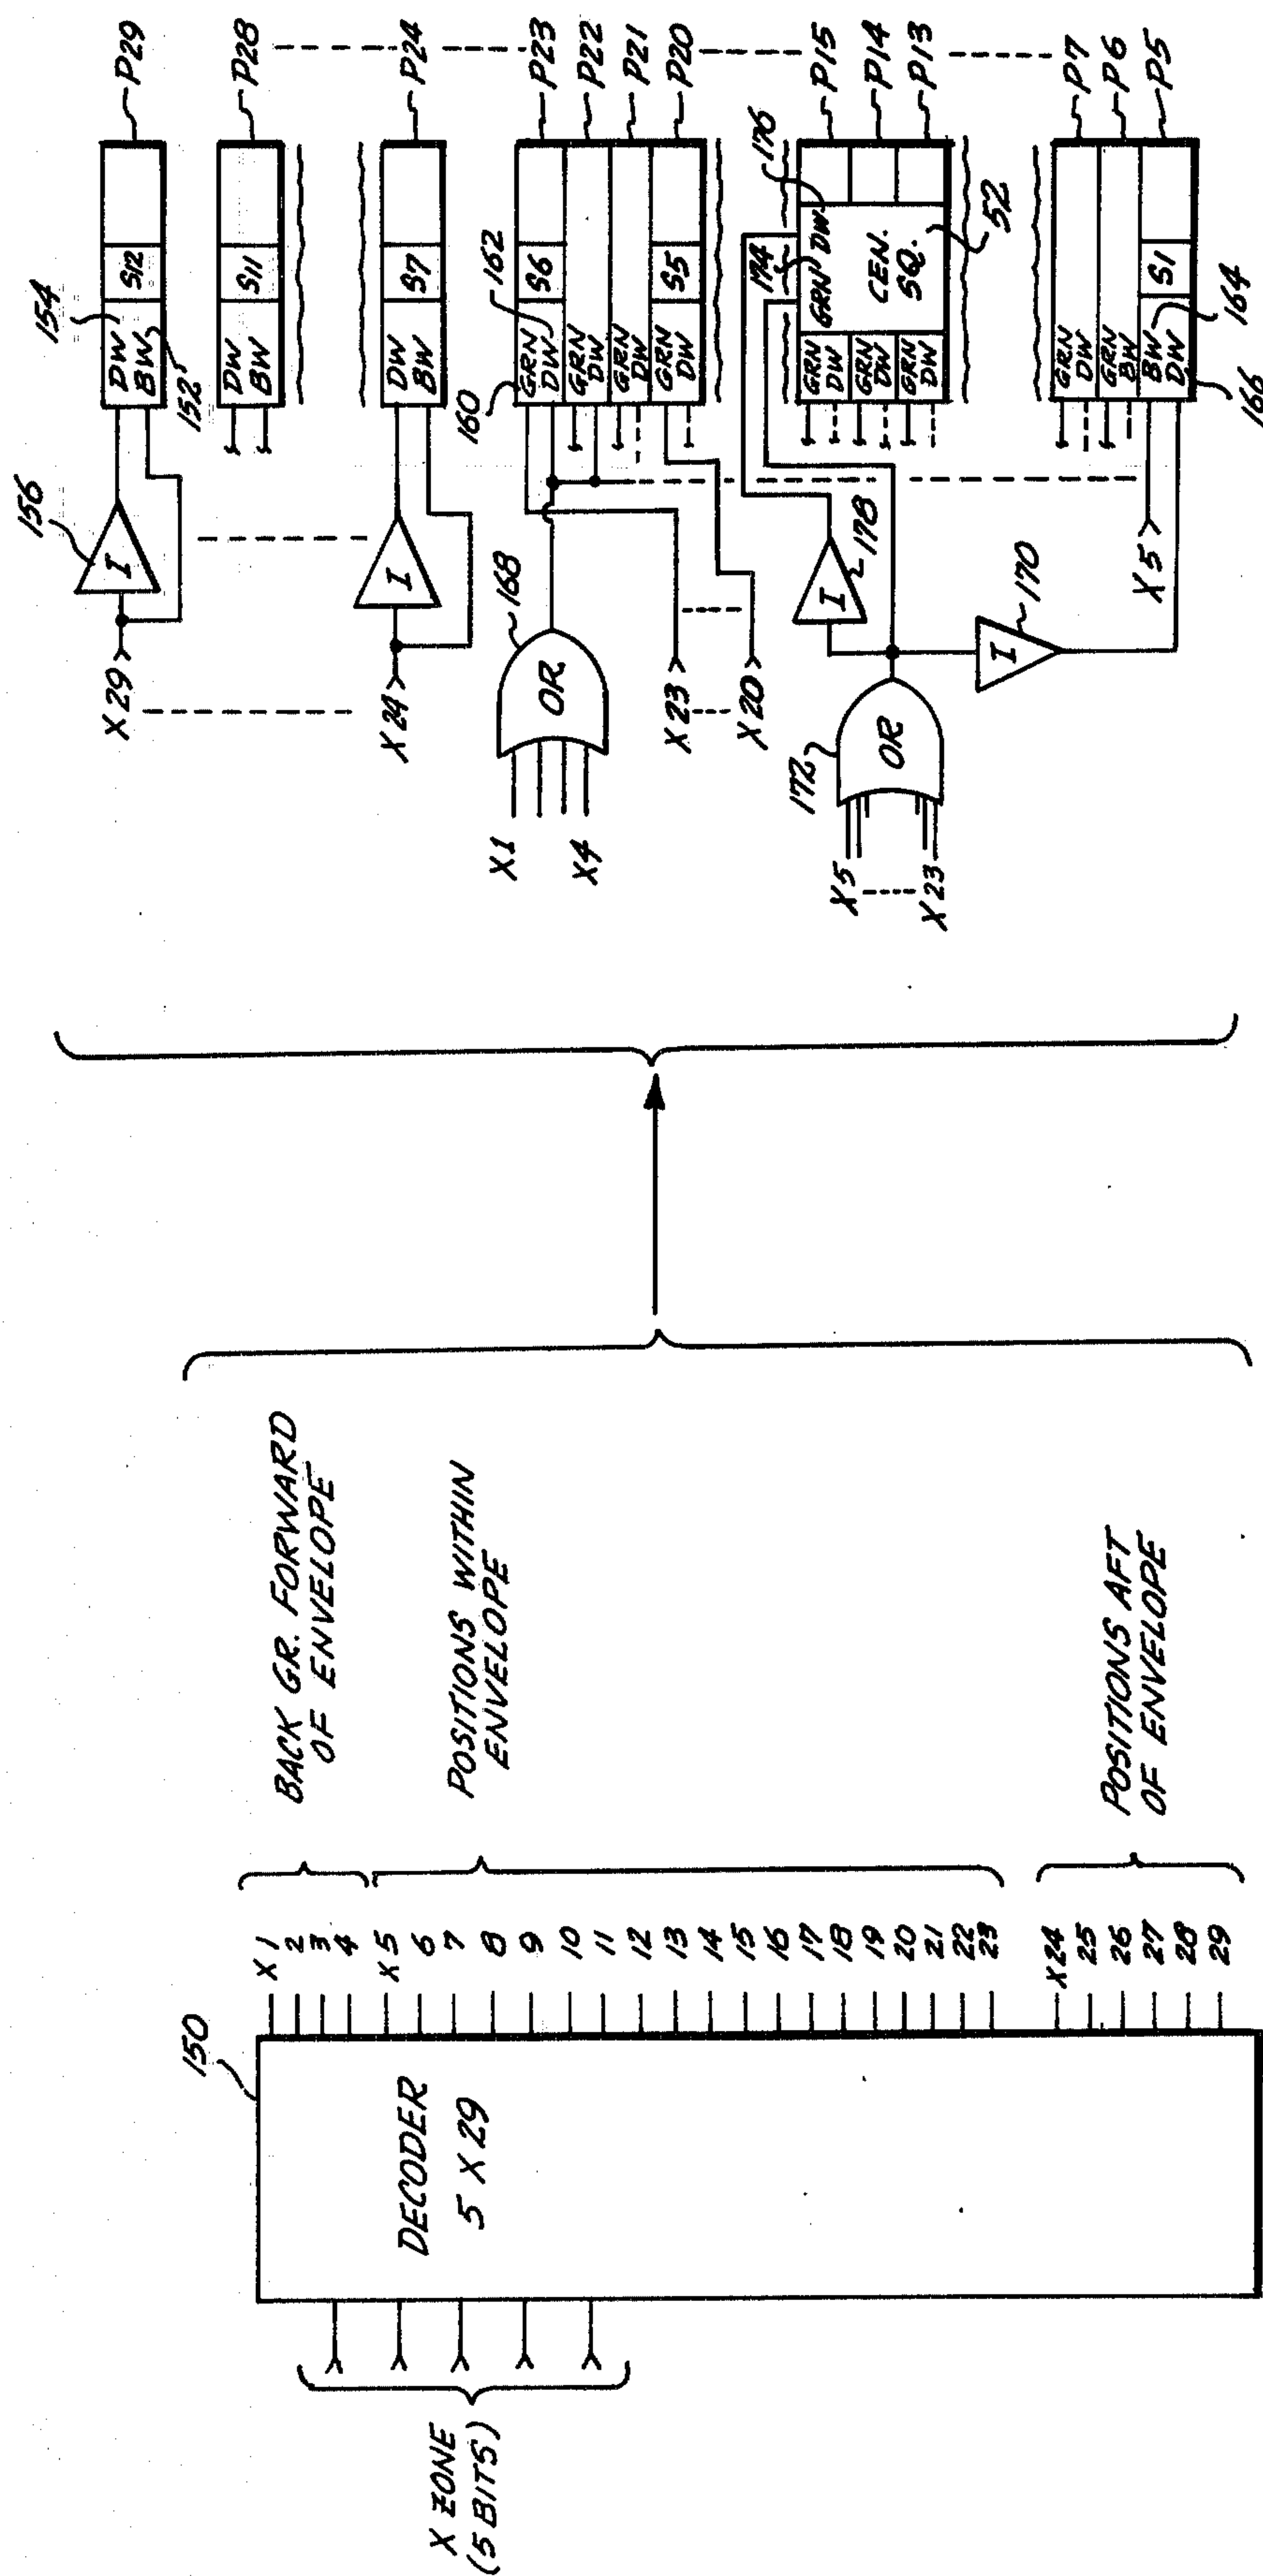 X ZONE
(5 BITS)
150
DECODER
5 X 29
X 1
2
3
4
X 5
6
7
8
9
10
11
12
13
14
15
16
17
18
19
20
21
22
23
X24
25
26
27
28
29
BACK GR. FORWARD
OF ENVELOPE
POSITIONS WITHIN
ENVELOPE
POSITIONS AFT
OF ENVELOPE
X29
156
I
154
DW
BW
152
S12
P29
DW
BW
S11
P28
X24
I
DW
BW
S7
P24
X1
X4
OR
168
X23
X20
160
GRN
DW
S6
162
P23
GRN
DW
P22
GRN
DW
P21
GRN
DW
S5
P20
X5
X23
172
OR
I
178
I
170
174
GRN
DW
176
CEN.
SQ.
52
GRN
DW
P15
GRN
DW
P14
GRN
DW
P13
X5
GRN
DW
P7
GRN
BW
P6
BW
DW
S1
P5
164
166